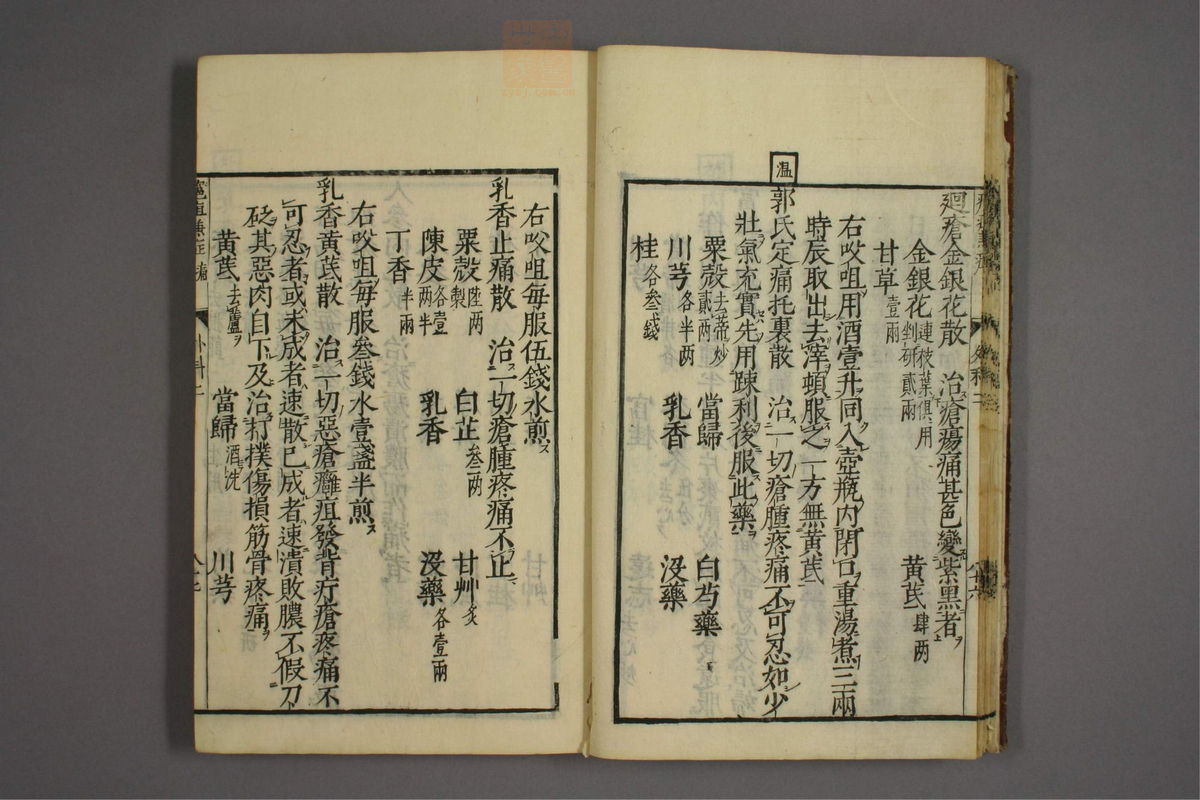 廻瘡金銀花散 治瘡瘍痛甚色變紫黑者
金銀花 連枝葉俱用剉研貳兩 黃芪 肆兩
甘草 壹兩
右㕮咀用酒壹升同入壺瓶內閉口重湯煮三兩
時辰取出去滓頓服之一方無黃芪
溫
郭氏定痛托裏散 治一切瘡腫疼痛不可忍如少
壯氣充實先用踈利後服此藥
粟殼 去蒂炒貳兩 當歸 白芍藥
川芎 各半兩 乳香 沒藥
桂 各叁錢
右㕮咀每服伍錢水煎
乳香止痛散 治一切瘡腫疼痛不止
粟殼 陸兩製 白芷 叁兩 甘艸 炙
陳皮 各壹兩半 乳香 沒藥 各壹兩
丁香 半兩
右㕮咀每服叁錢水壹盞半煎
乳香黃芪散 治一切惡瘡癰疽發背疔瘡疼痛不
可忍者或未成者速散已成者速潰敗膿不假刀
砭其惡肉自下及治打撲傷損筋骨疼痛
黃芪 去蘆 當歸 酒洗 川芎